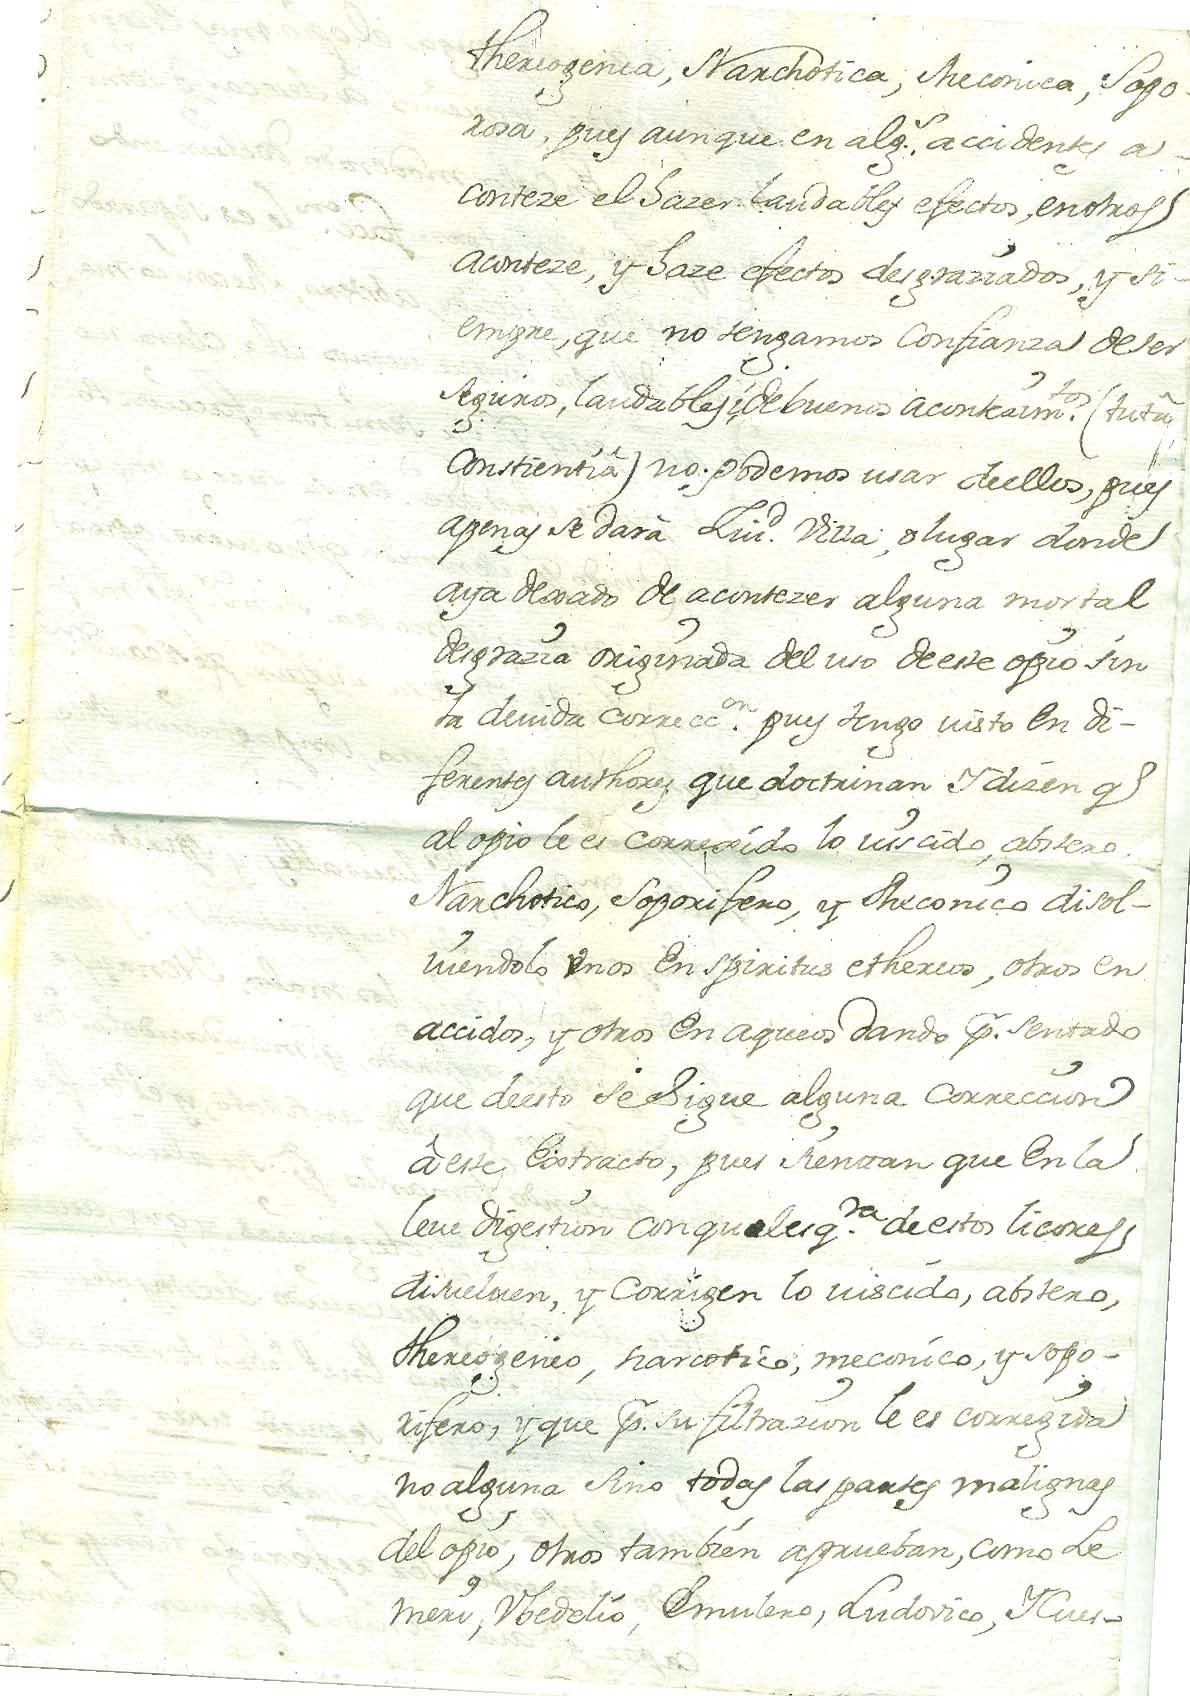 thereogenea, Narchotica, Meconica, Sopo-
rosa, pues aunque en alg.s accidentes a-
conteze el hazer laudables efectos, en otros
aconteze, y haze efectos desgraziados, y si-
empre, que no tengamos confianza de ser
seguros, laudables, i de buenos aconteZim.tos (tutâ
constientiâ) no podemos usar de ellos, pues
apenas se darà Ciu.d Villa, o lugar donde
aya dexado de acontezer alguna mortal
desgrazia originada del uso de este opio sin
la devida correcc.on pues tengo visto en di-
ferentes authores que doctrinan Y dizen q
al opio le es correxido lo viscido, abstero,
Narchotico, Soporifero, y Meconico disol-
viendolo Vnos en spiritus ethereos, otros en
accidos, y otros en aqueos dando p. sentado
que de esto se sigue alguna correccion
â este Extracto, pues sientan que en la
leve digestion con qualesq.ra de estos licores
disuelven, y corrigen lo viscido, abstero,
thereogeneo, narcotico, meconico, y sopo-
rifero, y que p. su filtrazion le es corregida
no alguna sino todas las partes malignas
del opio, otros tambien aprueban, como Le
meri, Vbedelio, Etmulero, Ludovico, Y Cues-